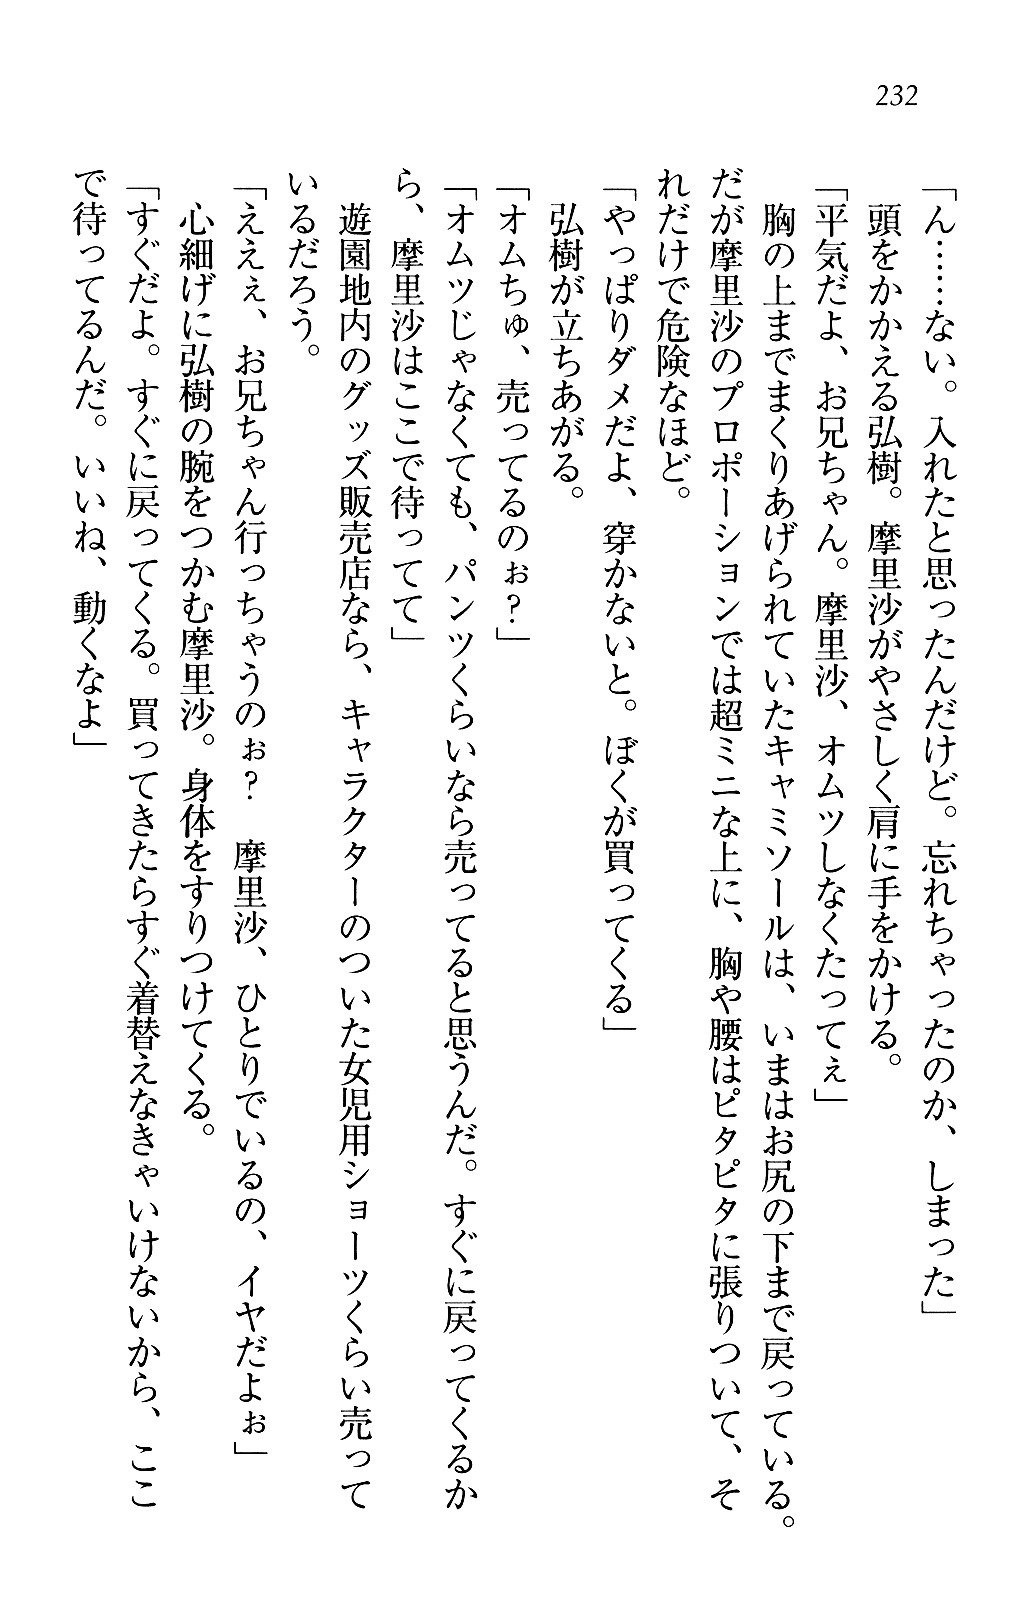 232
「ん……ない。入れたと思ったんだけど。忘れちゃったのか、しまった」
頭をかかえる弘樹。摩里沙がやさしく肩に手をかける。
「平気だよ、お兄ちゃん。摩里沙、オムツしなくたってぇ」
胸の上までまくりあげられていたキャミソールは、いまはお尻の下まで戻っている。
だが摩里沙のプロポーションでは超ミニな上に、胸や腰はピタピタに張りついて、そ
れだけで危険なほど。
「やっぱりダメだよ、穿かないと。ぼくが買ってくる」
弘樹が立ちあがる。
「オムちゅ、売ってるのぉ?」
「オムツじゃなくても、パンツくらいなら売ってると思うんだ。すぐに戻ってくるか
ら、摩里沙はここで待ってて」
遊園地内のグッズ販売店なら、キャラクターのついた女児用ショーツくらい売って
いるだろう。
「ええぇ、お兄ちゃん行っちゃうのぉ?　摩里沙、ひとりでいるの、イヤだよぉ」
心細げに弘樹の腕をつかむ摩里沙。身体をすりつけてくる。
「すぐだよ。すぐに戻ってくる。買ってきたらすぐ着替えなきゃいけないから、ここ
で待ってるんだ。いいね、動くなよ」